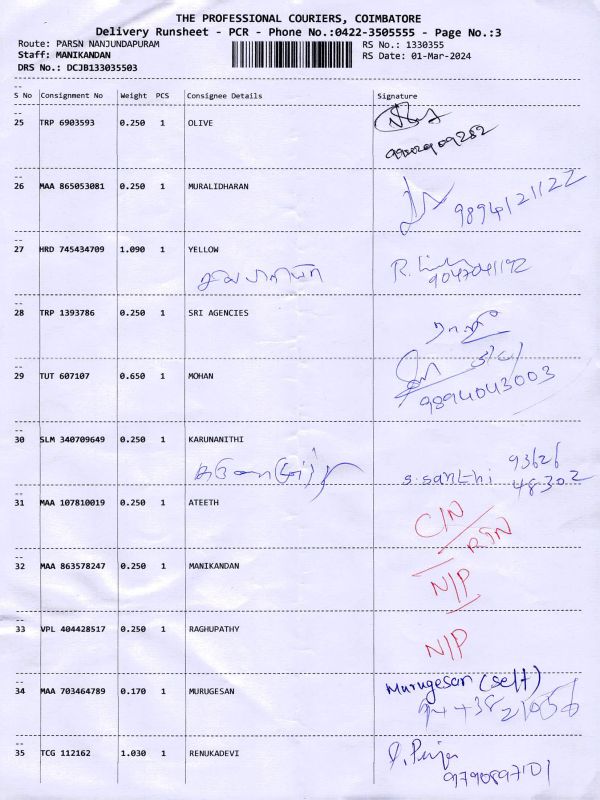 THE PROFESSIONAL COURIERS, COIMBATORE
Delivery Runsheet - PCR - Phone No.:0422-3505555 - Page No.:3
Route: PARSN NANJUNDAPURAM RS No.: 1330355
Staff: MANIKANDAN RS Date: 01-Mar-2024
DRS No.: DCJB133035503
--
S No Consignment No Weight PCS Consignee Details Signature
--
25 TRP 6903593 0.250 1 OLIVE
--
26 MAA 865053081 0.250 1 MURALIDHARAN
9894121122
--
27 HRD 745434709 1.090 1 YELLOW
9047041192
--
28 TRP 1393786 0.250 1 SRI AGENCIES
--
29 TUT 607107 0.650 1 MOHAN
9894043003
--
30 SLM 340709649 0.250 1 KARUNANITHI
S.Santhi 93626
48302
--
31 MAA 107810019 0.250 1 ATEETH
C/N
RSN
--
32 MAA 863578247 0.250 1 MANIKANDAN
N/P
--
33 VPL 404428517 0.250 1 RAGHUPATHY
N/P
--
34 MAA 703464789 0.170 1 MURUGESAN
Murugesan (self)
--
35 TCG 112162 1.030 1 RENUKADEVI
9790897101